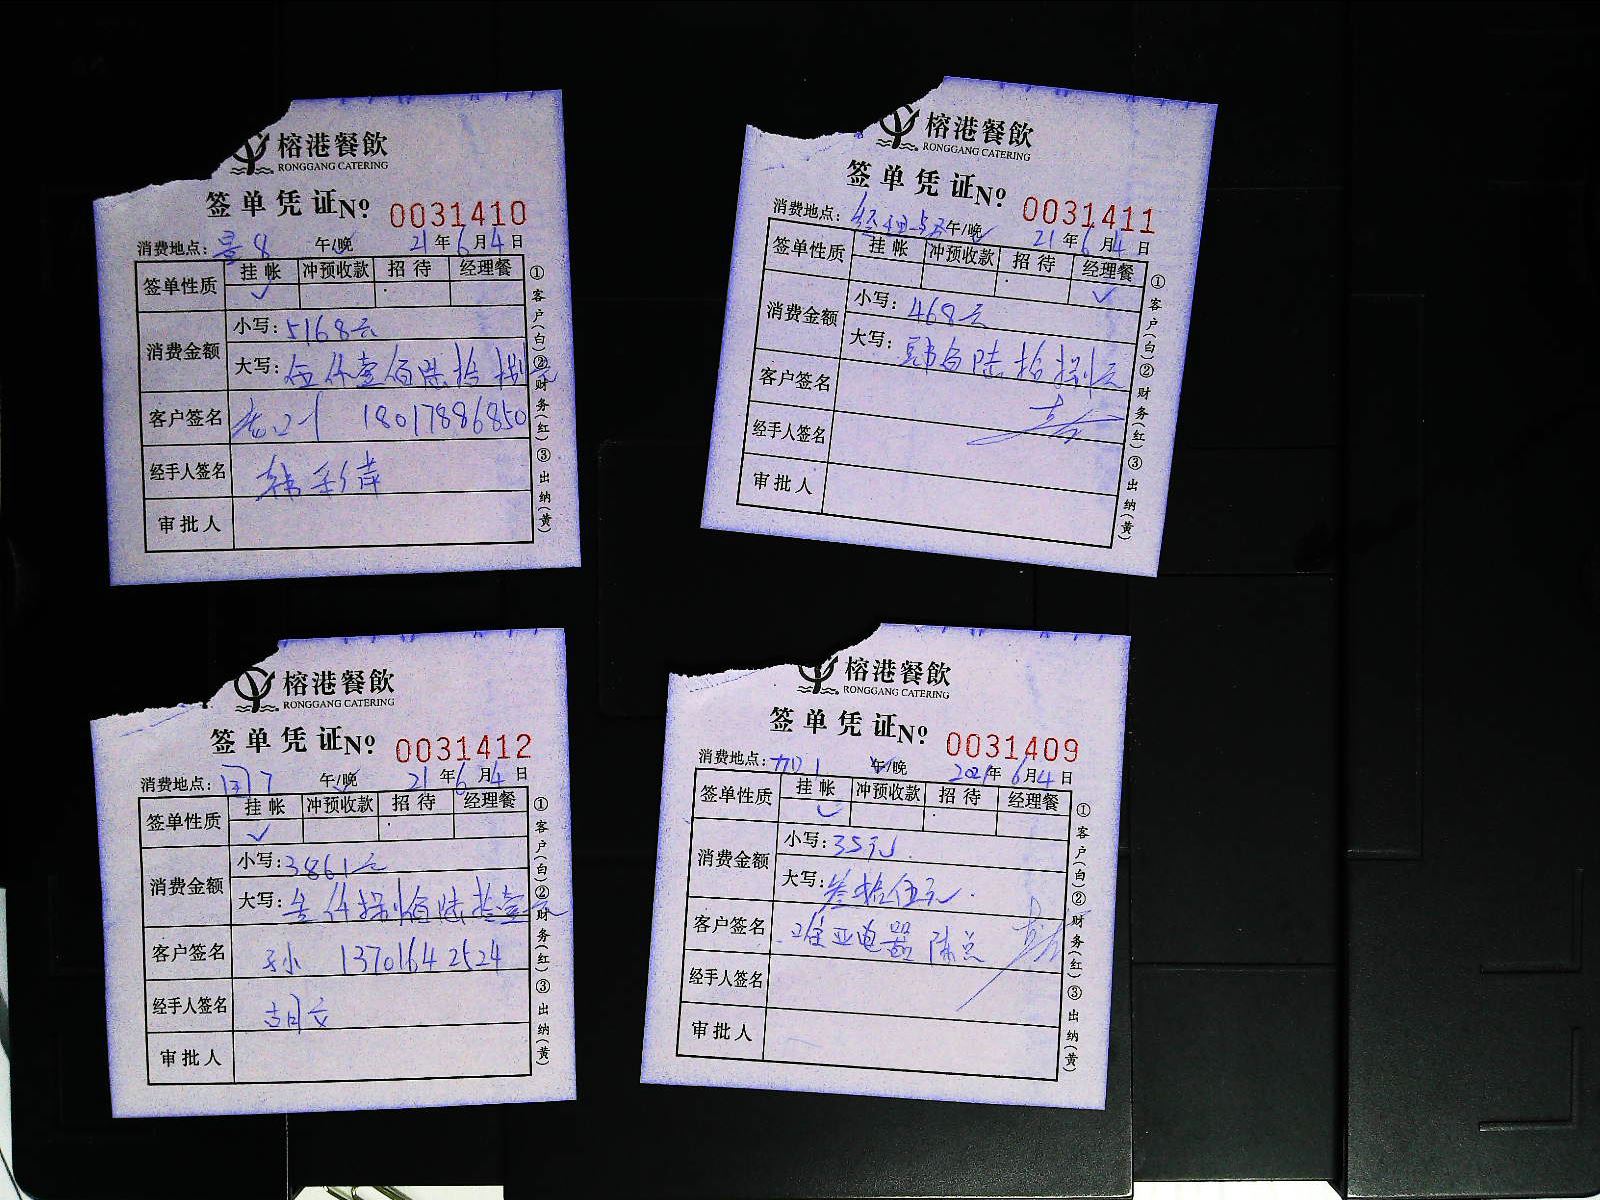 榕港餐飲
RONGGANG CATERING
签单凭证№ 0031410
消费地点: 景8 午/晚 21年6月4日
签单性质 挂帐 冲预收款 招待 经理餐
✓
消费金额 小写: 5168元
大写: 伍仟壹佰陆拾捌元
客户签名 18017886850
经手人签名 韩彩萍
审批人
①客户(白)②财务(红)③出纳(黄)
榕港餐飲
RONGGANG CATERING
签单凭证№ 0031411
消费地点: 午/晚 21年6月4日
签单性质 挂帐 冲预收款 招待 经理餐
✓
消费金额 小写: 468元
大写: 肆佰陆拾捌元
客户签名
经手人签名
审批人
①客户(白)②财务(红)③出纳(黄)
榕港餐飲
RONGGANG CATERING
签单凭证№ 0031412
消费地点: 国7 午/晚 21年6月4日
签单性质 挂帐 冲预收款 招待 经理餐
✓
消费金额 小写: 3861元
大写: 叁仟捌佰陆拾壹元
客户签名 孙 13701642524
经手人签名 胡文
审批人
①客户(白)②财务(红)③出纳(黄)
榕港餐飲
RONGGANG CATERING
签单凭证№ 0031409
消费地点: 午/晚 2021年6月4日
签单性质 挂帐 冲预收款 招待 经理餐
✓
消费金额 小写: 35元
大写: 叁拾伍元
客户签名 亚电器 陈总
经手人签名
审批人
①客户(白)②财务(红)③出纳(黄)